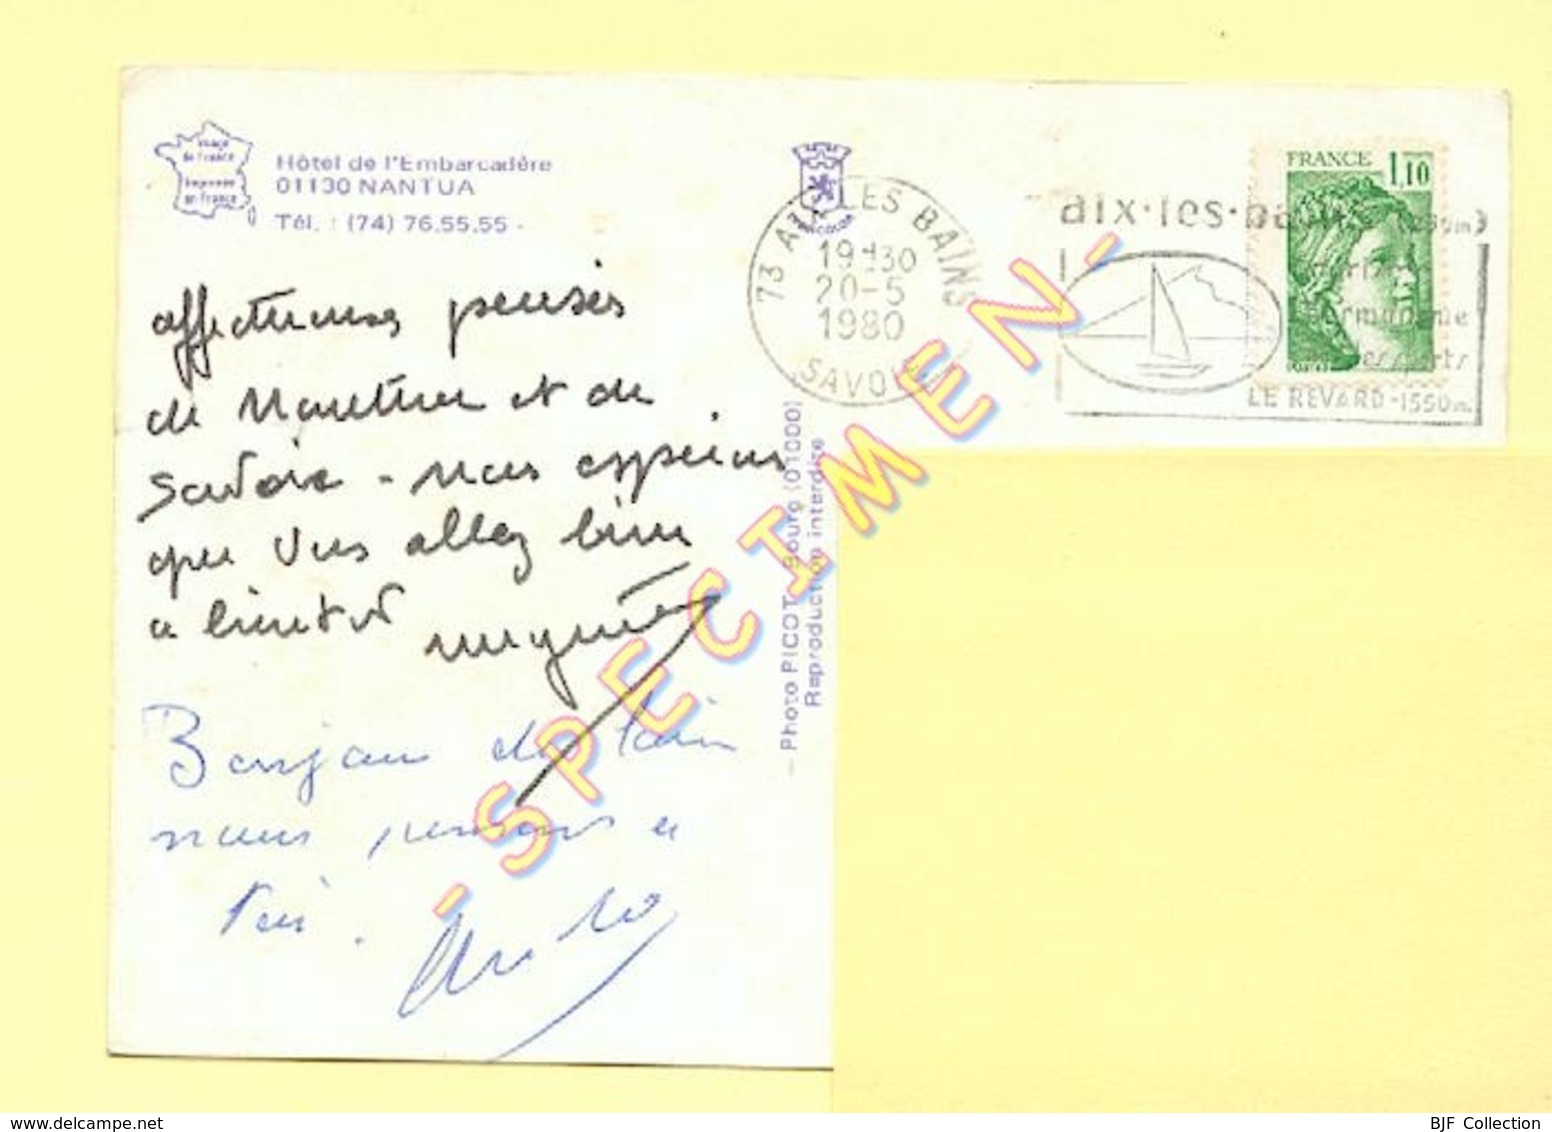 Image
de France
Imprimée
en France
Hôtel de l'Embarcadère
01130 NANTUA
Tél. : (74) 76.55.55 -
73 AIX LES BAINS
19H30
20-5
1980
SAVOIE
aix·les·bains (250m)
permanent
des sports
LE REVARD-1550m.
FRANCE
1,10
affectueuses pensées
de Nantua et de
Savoie - nous espérons
que vous allez bien
a bientot
Bonjour de loin
nous pensons a
toi.
- Photo PICOT - Bourg (01000)
Reproduction interdite
- SPECIMEN -
delcampe.net
BJF Collection